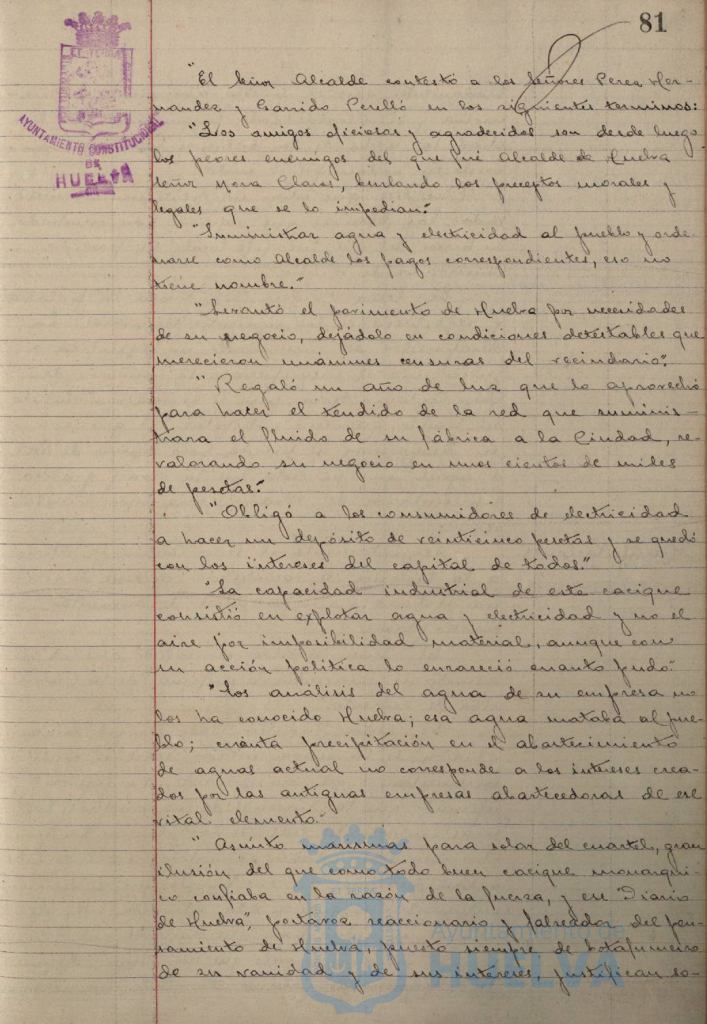 81
AYUNTAMIENTO CONSTITUCIONAL
DE
HUELVA
"El Señor Alcalde contestó a los Señores Perez Her-
nandez y Garrido Perelló en los siguientes terminos:
"Los amigos oficiosos y agradecidos son desde luego
los peores enemigos del que fué Alcalde de Huelva
señor Mora Claros, burlando los preceptos morales y
legales que se lo impedian."
"Suministrar agua y electricidad al pueblo y orde-
narse como Alcalde los pagos correspondientes, eso no
tiene nombre."
"Levantó el pavimento de Huelva por necesidades
de su negocio, dejádolo en condiciones detestables que
merecieron unánimes censuras del vecindario".
"Regaló un año de luz que lo aprovechó
para hacer el tendido de la red que suminis-
trara el fluido de su fábrica a la Ciudad, re-
valorando su negocio en unos cientos de miles
de pesetas."
"Obligó a los consumidores de electricidad
a hacer un depósito de veinticinco pesetas y se quedó
con los intereses del capital de todos."
"La capacidad industrial de este cacique
consistió en explotar agua y electricidad y no el
aire por imposibilidad material, aunque con
su acción política lo enrareció cuanto pudo."
"Los análisis del agua de su empresa no
los ha conocido Huelva; esa agua mataba al pue-
blo; cuánta precipitación en el abastecimiento
de aguas actual no corresponde a los intereses crea-
dos por las antiguas empresas abastecedoras de ese
vital elemento."
"Asunto marismas para solar del cuartel, gran
ilusión del que como todo buen cacique monarqui-
co confiaba en la razón de la fuerza, y ese "Diario
de Huelva", portavoz reaccionario y falseador del pen-
samiento de Huelva, puesto siempre de botafumeiro
de su vanidad y de sus intereses, justifican so-
Ayuntamiento de
HUELVA